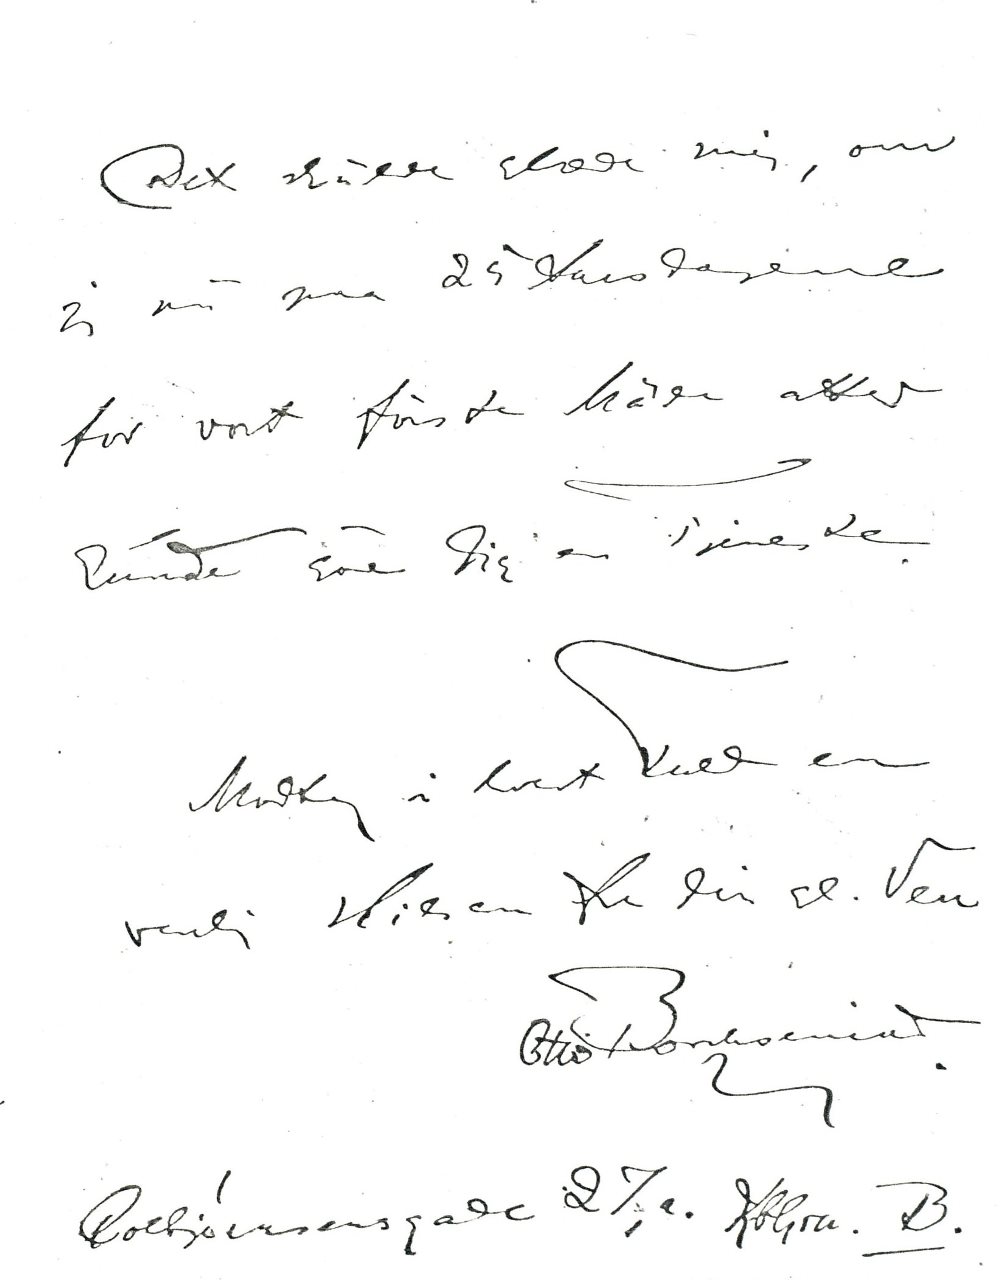 Det skulde glæde mig, om
jeg nu paa 25 Aarsdagene
for vort første Møde atter
kunde gøre Dig en Tjeneste.
Modtag i hvert Fald en
venlig Hilsen fra din gl. Ven
Otto Borchsenius.
27, Kbhvn. B.